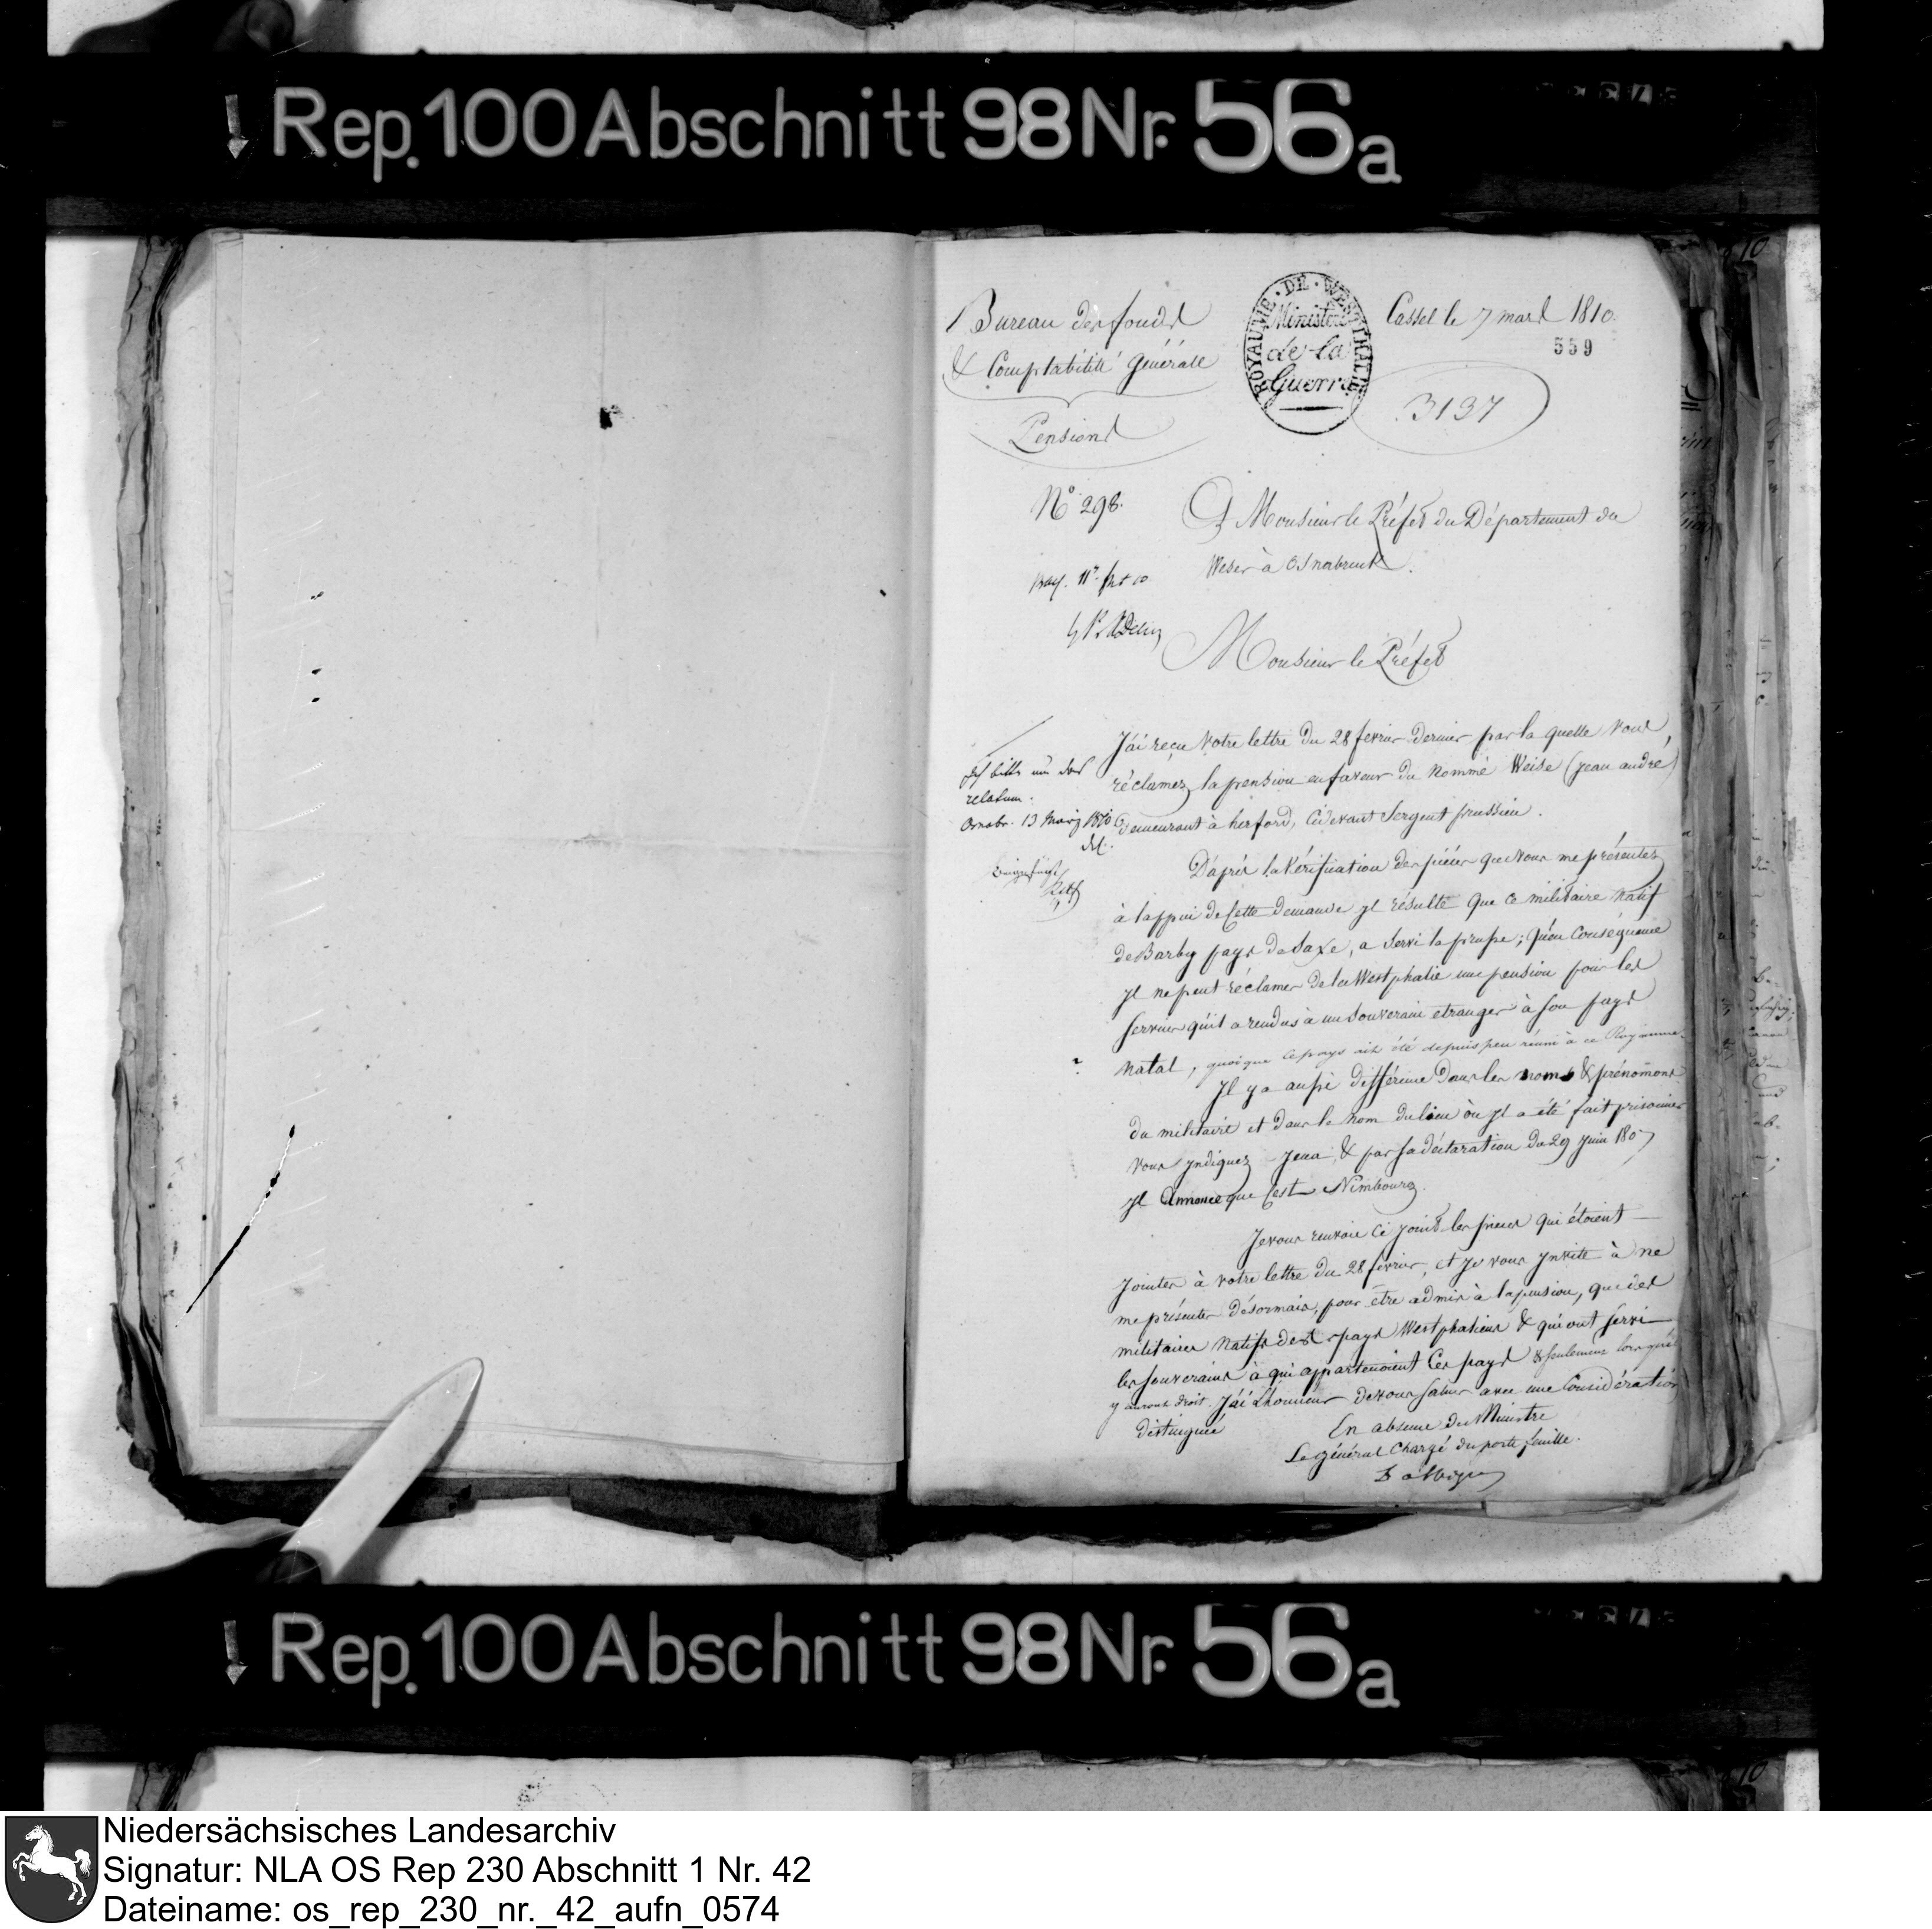 Rep. 100 Abschnitt 98 Nr. 56a
Bureau des fonds
& Comptabilité générale
Pensions
ROYAUME · DE · WESTPHALIE
Ministère
de la
Guerre
Cassel le 7 mars 1810.
559
3137
N° 298.
A Monsieur le Préfet du Département du
Weser à Osnabruck.
Monsieur le Préfet
J'ai reçu votre lettre du 28 fevrier dernier par la quelle vous
réclamez la pension en faveur du nommé Weise (jean andré)
demeurant à herford, cidevant Sergent prussien.
relatum.
Osnabr. 13 März 1810
D'après la Vérification des pièces que vous me présentez
à l'appui de Cette demande yl résulte que ce militaire natif
de Barby pays de Saxe, a Servi la prusse; qu'en Conséquence
yl ne peut réclamer de la Westphalie une pension pour les
services qu'il a rendus à un Souverain etranger à son pays
natal, quoique ce pays ait été depuis peu réuni à ce Royaume.
Il y a aussi différence dans les noms & prénoms
du militaire et dans le nom du lieu où yl a été fait prisonnier
vous yndiquez Jena, & par sa déclaration du 29 juin 1807
yl Annonce que C'est Nimbourg.
Je vous renvoie Ci joint les pièces qui étoient
jointes à votre lettre du 28 fevrier, et je vous ynvite à ne
me présenter désormais, pour être admis à la pension, que des
militaires natifs des pays Westphaliens & qui ont servi
les souverains à qui appartenoient Ces pays & seulement lorsqu'ils
y auront droit. J'ai L'honneur de vous saluer avec une Considération
distinguée
En absence du Ministre
Le général Chargé du porte feuille.
Rep. 100 Abschnitt 98 Nr. 56a
Niedersächsisches Landesarchiv
Signatur: NLA OS Rep 230 Abschnitt 1 Nr. 42
Dateiname: os_rep_230_nr._42_aufn_0574